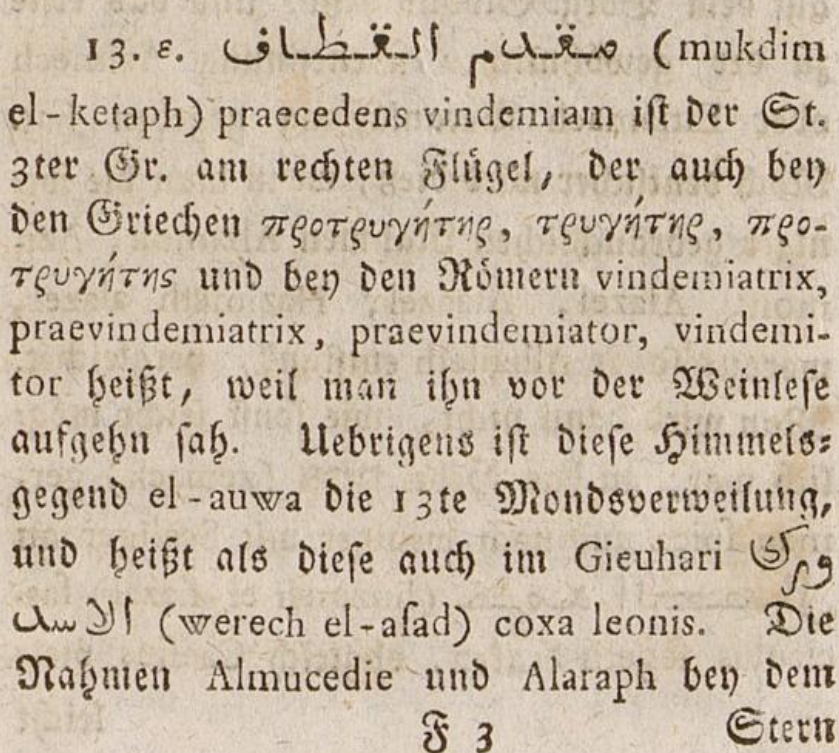 13. ε. مقدم القطاف (mukdim
el-ketaph) praecedens vindemiam iſt der St.
3ter Gr. am rechten Flügel, der auch bey
den Griechen προτρυγήτης, τρυγήτης, προ-
τρυγήτης und bey den Römern vindemiatrix,
praevindemiatrix, praevindemiator, vindemi-
tor heißt, weil man ihn vor der Weinleſe
aufgehn ſah. Uebrigens iſt dieſe Himmels-
gegend el-auwa die 13te Mondsverweilung,
und heißt als dieſe auch im Gieuhari ورك
الاسد (werech el-aſad) coxa leonis. Die
Nahmen Almucedie und Alaraph bey dem
F 3 Stern